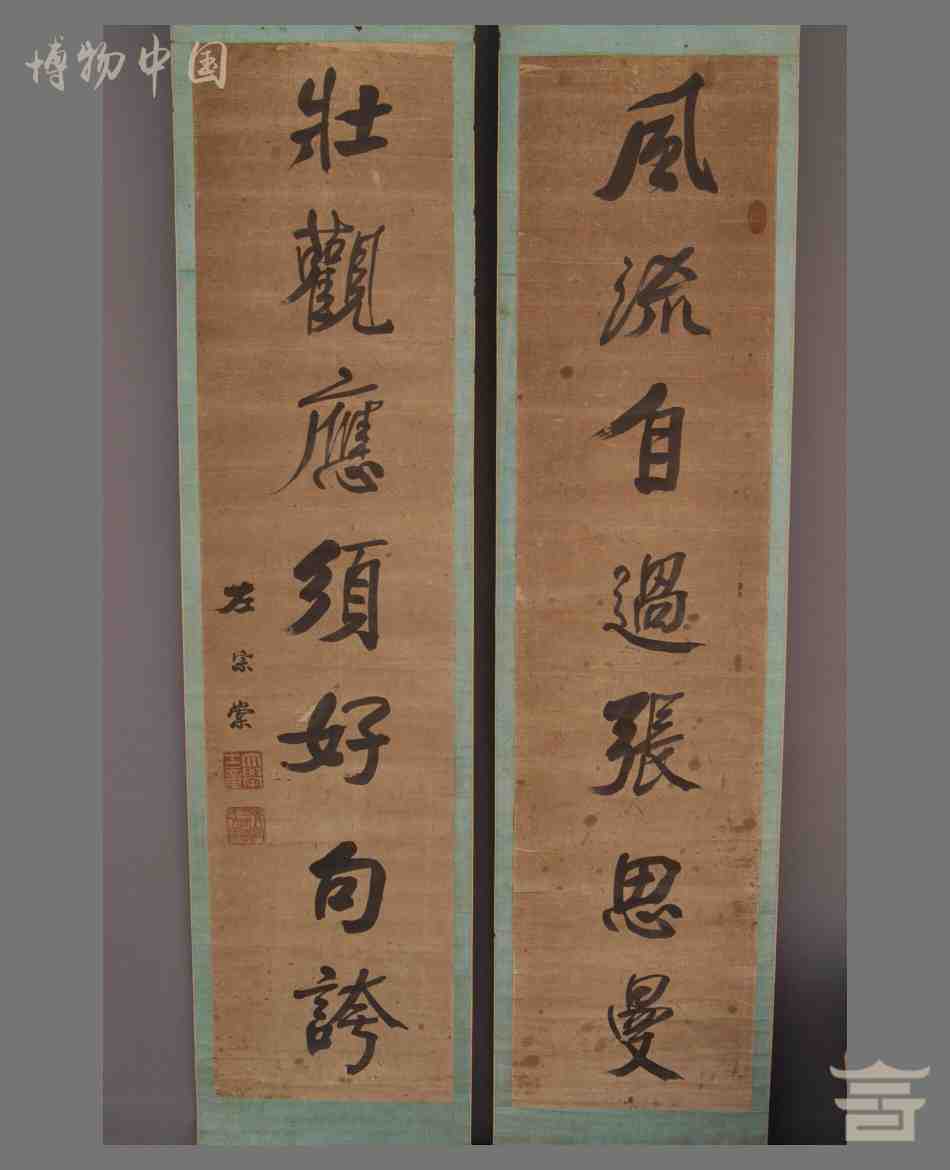 風流自過張思曼
壯觀應須好句誇
左宗棠
博物中国